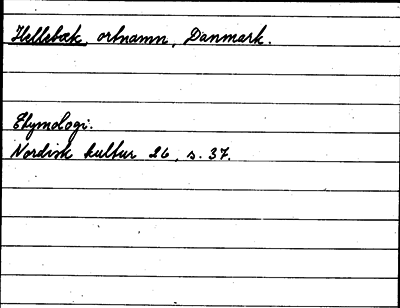 Hellebæk, ortnamn, Danmark.
Etymologi.
Nordisk kultur 26, s. 37.